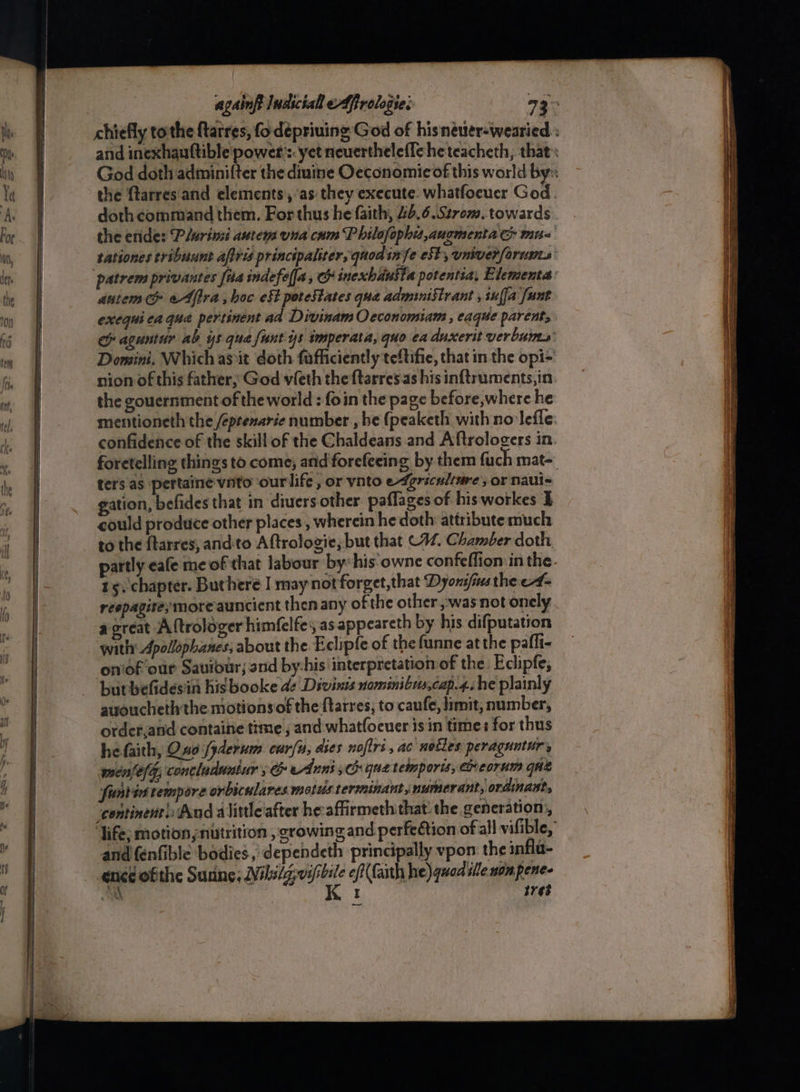 againſt Iudiciall Aſtrologie. 73
chiefly to the ſtarres, ſo depriuing God of his neuer-wearied
and inexhauſtible power: yet neuertheleſſe he teacheth, that
God doth adminiſter the diuine Oeconomie of this world by
the ſtarres and elements, as they execute whatſoeuer God
doth command them. For thus he ſaith, lib.6.Strom. towards
the ende: Plurimi autem vna cum Philoſophis, augmenta & mu-
tationes tribuunt aſtris principaliter, quod in ſe eſt, vniuerſorum
patrem priuantes ſua indefeſſa, & inexhauſta potentia. Elementa
autem & Aſtra, hoc eſt poteſtates quæ adminiſtrant, iuſſa ſunt
exequi ea quæ pertinent ad Diuinam Oeconomiam, eaque parent,
& aguntur ab ijs quæ ſunt ijs imperata, quo ea duxerit verbum
Domini. Which as it doth ſufficiently teſtifie, that in the opi-
nion of this father, God vſeth the ſtarres as his inſtruments, in
the gouernment of the world : ſo in the page before, where he
mentioneth the ſeptenarie number, he ſpeaketh with no leſſe
confidence of the skill of the Chaldeans and Aſtrologers in
foretelling things to come, and foreſeeing by them ſuch mat-
ters as pertaine vnto our life, or vnto Agriculture, or naui-
gation, beſides that in diuers other paſſages of his workes I
could produce other places, wherein he doth attribute much
to the ſtarres, and to Aſtrologie, but that M. Chamber doth
partly eaſe me of that labour by his owne confeſſion in the
15. chapter. But here I may not forget, that Dyoniſius the A-
reopagite, more auncient then any of the other, was not onely
a great Aſtrologer himſelfe, as appeareth by his diſputation
with Apollophanes, about the Eclipſe of the ſunne at the paſſi-
on of our Sauiour, and by his interpretation of the Eclipſe,
but beſides in his booke de Diuinis nominibus, cap.4. he plainly
auoucheth the motions of the ſtarres, to cauſe, limit, number,
order, and containe time, and whatſoeuer is in time : for thus
he ſaith, Quo ſyderum curſu, dies noſtri, ac noctes peraguntur,
menſeſq; concluduntur, & Anni, & quæ temporis, & eorum quæ
ſunt in tempore orbiculares motus terminant, numerant, ordinant,
continent. And a little after he affirmeth that the generation,
life, motion, nutrition, growing and perfection of all viſible,
and ſenſible bodies, dependeth principally vpon the influ-
ence of the Sunne; Nihilq; viſibile eſt (ſaith he) quod ille non pene-
K 1 tret